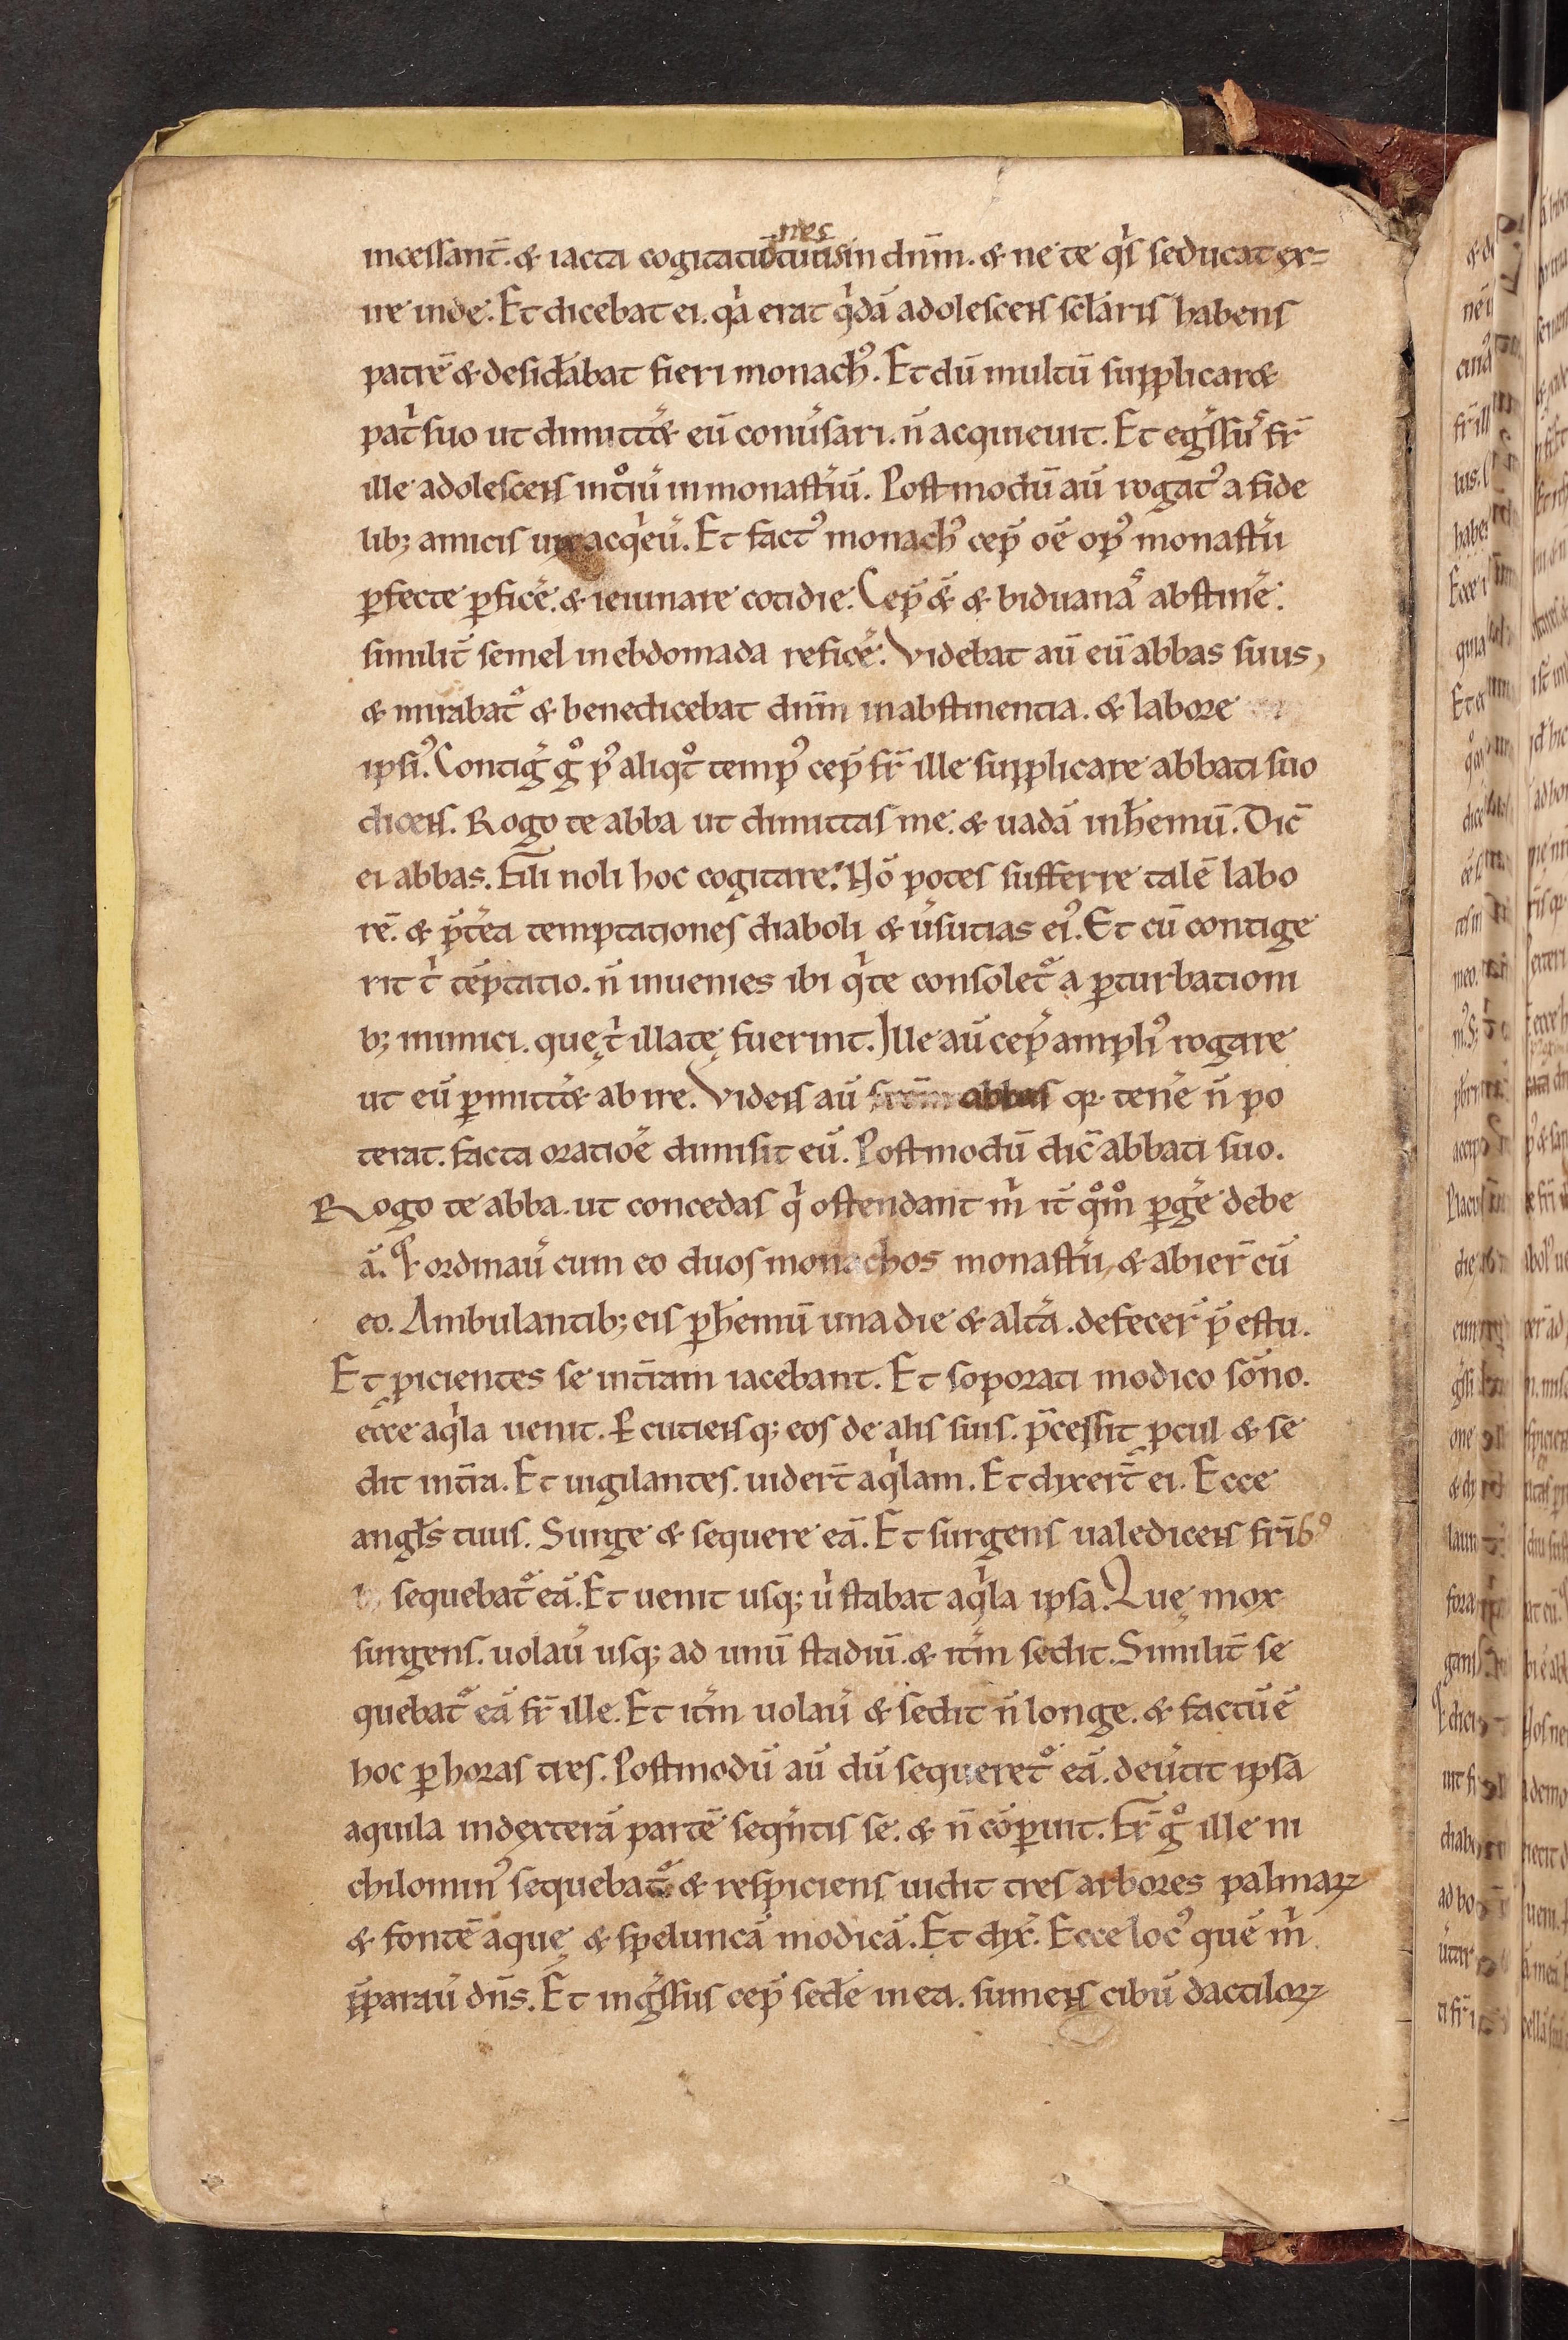 nes
incessant̄. & iacta cogitatiōtuas in dn̄m. & ne te qͥs seducat ex=
ire inde. Et dicebat ei. qͥa erat qͥdā adolescens sclāris habens
patrē & desidabat fieri monachꝰ. Et dū multū supplicar&
patͥ suo ut dimitt& eū conuͥsari. n̄ acquieuit. Et egͥssuͥ fr̄
ille adolescens intͦiū in monastͥiū. Postmodū aū rogatꝰ a fide
lib; amicis uix acqͥeū. Et factꝰ monachꝰ cep̄ oē opꝰ monastͥii
ꝑfecte ꝑficē. & ieiunare cotidie. Cep̄ & & biduanā abstinē.
similit̄ semel in ebdomada reficē. Videbat aū eū abbas suus,
& mirabat᷑ & benedicebat dn̄m in abstinentia. & labore
ipsiꝰ. Contiǵ ǵͦ pꝰ aliqͦt tempꝰ cep̄ fr̄ ille supplicare abbati suo
dicens. Rogo te abba ut dimittas me. & uadā in hemū. Dic̄
ei abbas. Fili noli hoc cogitare. Nō potes sufferre talē labo
rē. & p̄tea temptationes diaboli & uͥsutias eiꝰ. Et cū contige
rit tͥ tēptatio. n̄ inuenies ibi qͥ te consolet᷑ a ꝑturbationi
b; inimici. quę tͥ illatę fuerint. Ille aū cep̄ ampliꝰ rogare
ut eū ꝑmitt& abire. Videns aū abbas qꝛ tenē n̄ po
terat. facta oratiōe dimisit eū. Postmodū dic̄ abbati suo.
Rogo te abba. ut concedas qͥ ostendant mͥ it̄ qͦmͦ ꝑgē debe
ā. Et ordinaū cum eo duos monachos monastͥii, & abier̄ cū
eo. Ambulantib; eis ꝑ hemū una die & altā. defecer̄ p̄ estu.
Et ꝓicientes se in t̄ram iacebant. Et soporati modico sōno.
ecce aqͥla uenit. Ꝑcutiensq; eos de alis suis. p̄cessit ꝓcul & se
dit in t̄ra. Et uigilantes. uidert̄ aqͥlam. Et dixert̄ ei. Ecce
angls tuus. Surge & sequere eā. Et surgens ualedicens fribꝰ
sequebat᷑ eā. Et uenit usq; uͥ stabat aqͥla ipsa. Quę mox
surgens. uolaū usq; ad unū stadiū. & it̄m sedit. Similit̄ se
quebat᷑ eā fr̄ ille. Et it̄m uolaū & sedit n̄ longe. & factū ē
hoc ꝑ horas tres. Postmodū aū dū sequeret᷑ eā. deuͥtit ipsa
aquila in dexterā partē seqͥntis se. & n̄ cōparuit. Fr̄ ǵͦ ille ni
chilominꝰ sequebat᷑ & respiciens uidit tres arbores palmaꝝ
& fontē aquę & speluncā modicā. Et dix̄. Ecce locꝰ quē mͥ
p̄paraū dn̄s. Et ingͥssus cep̄ sedē in ea. sumens cibū dactiloꝝ